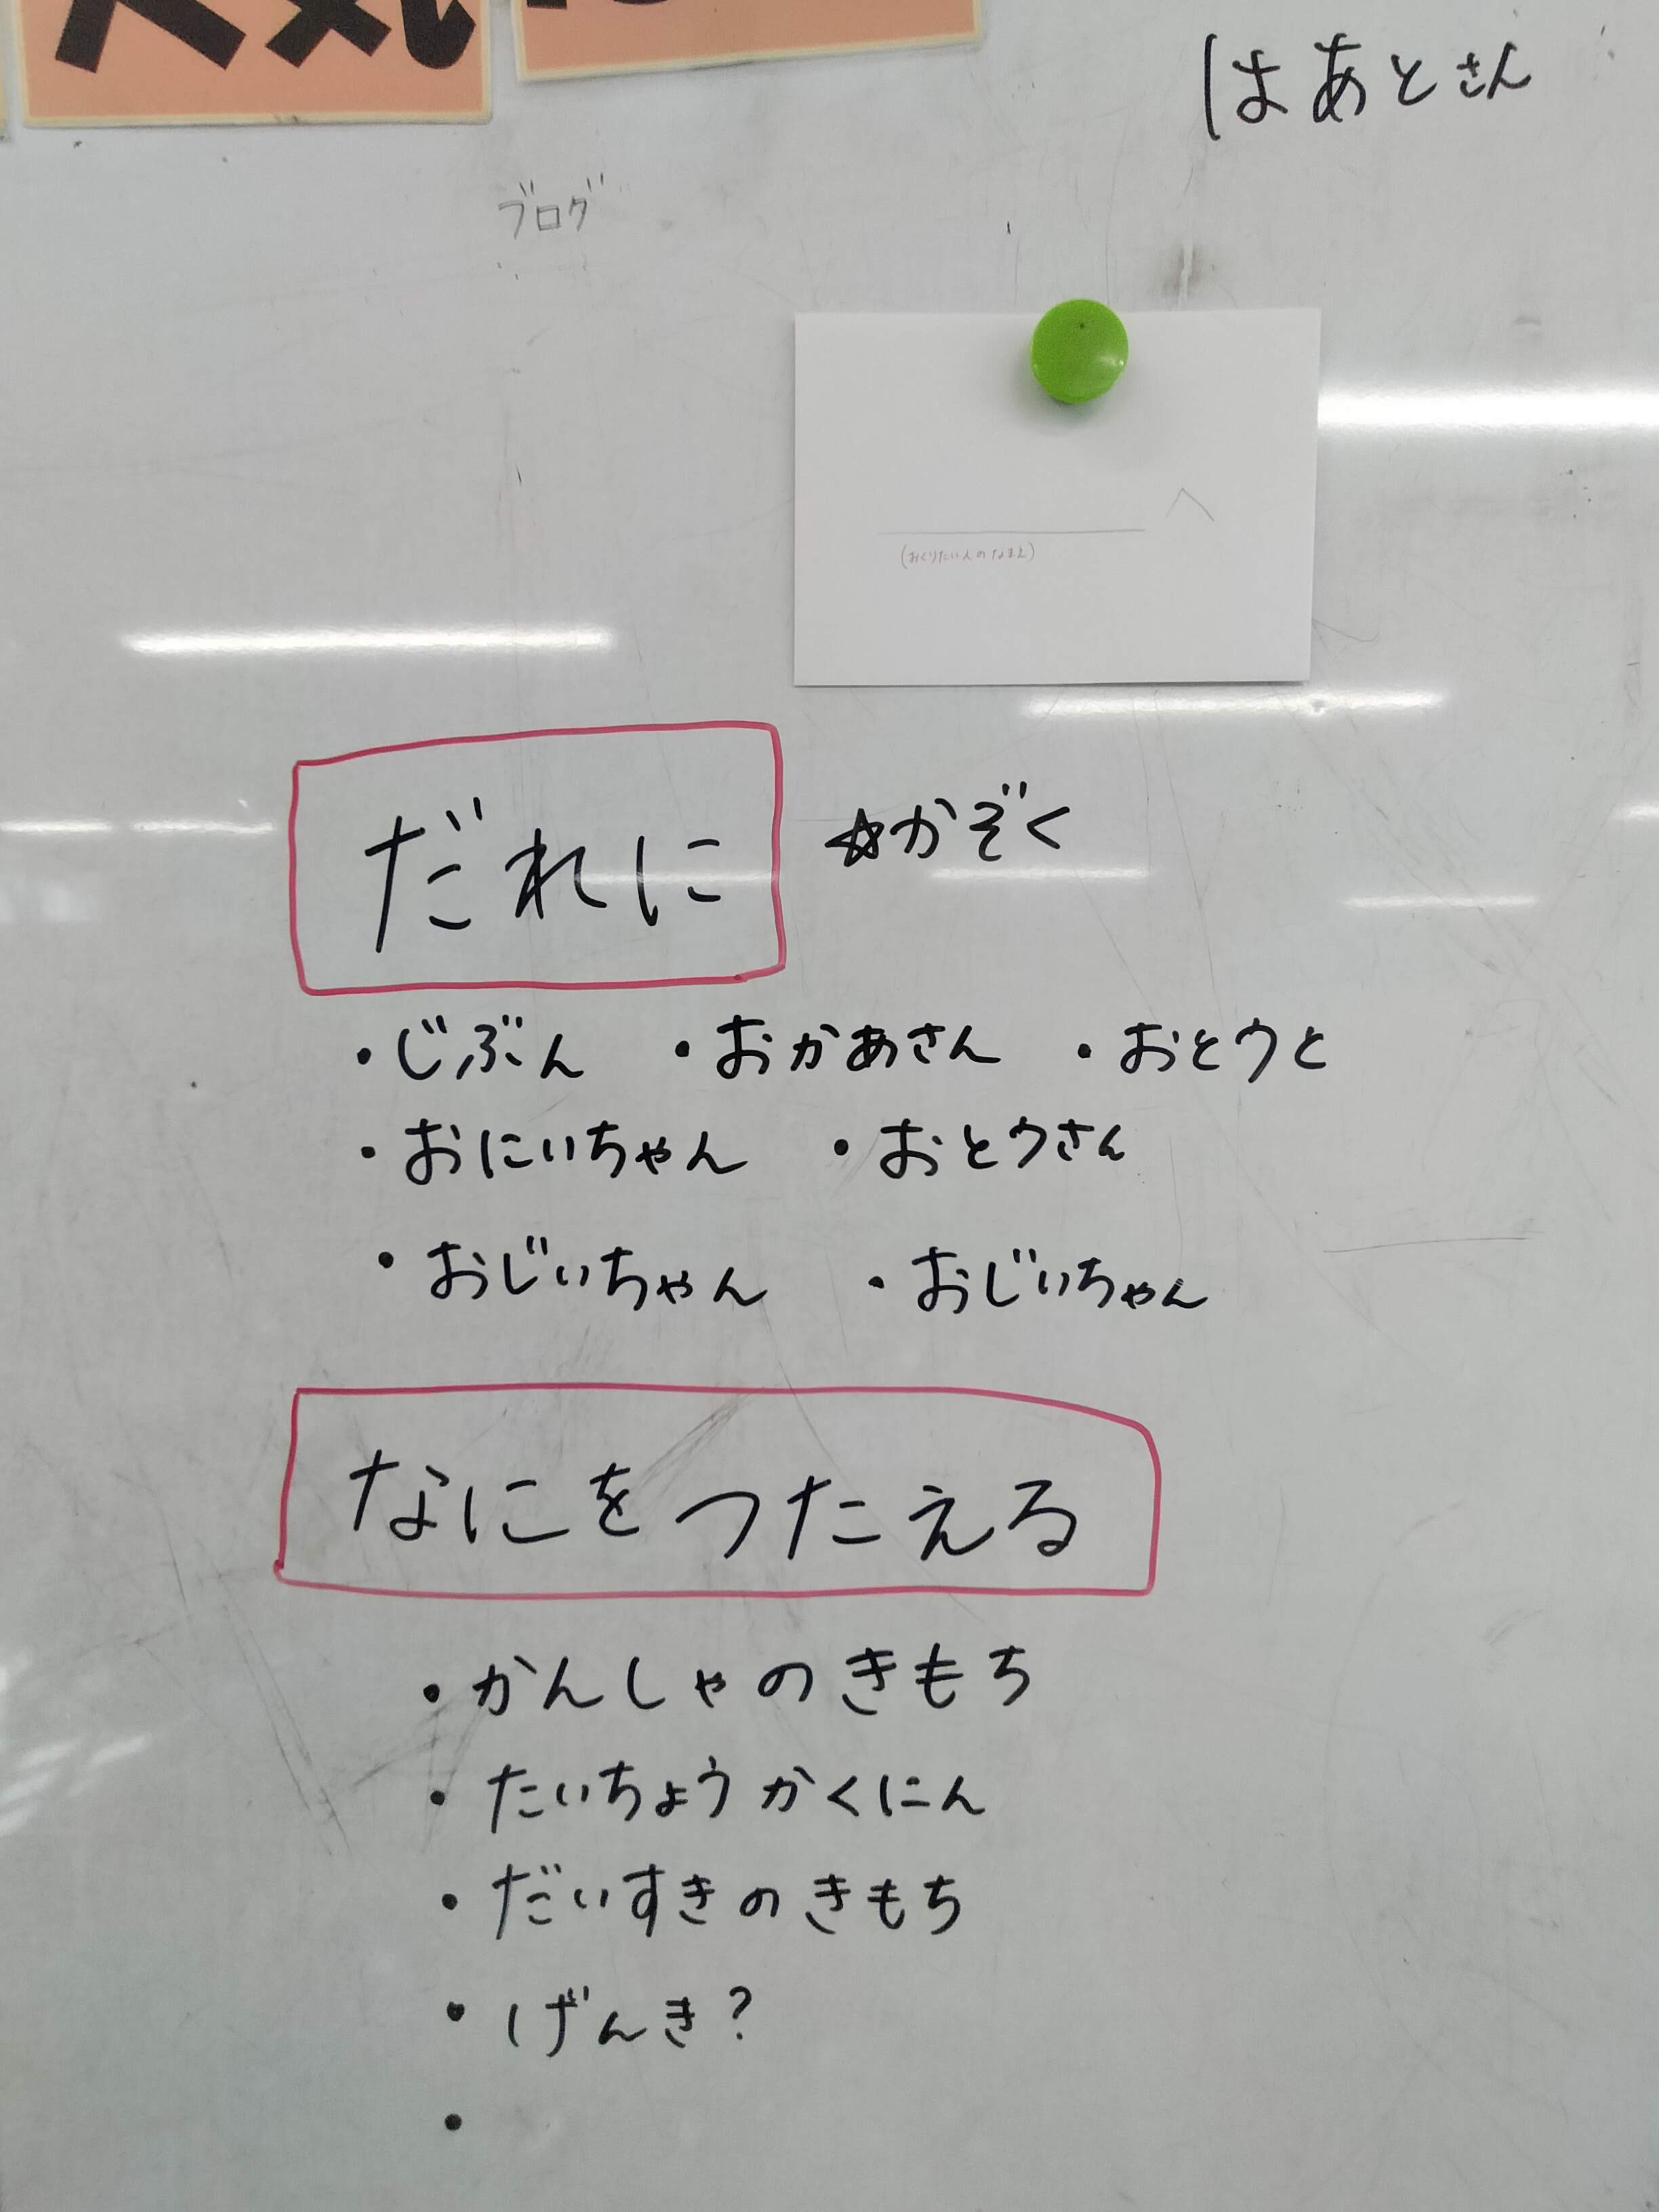 はあとさん
ブログ
へ
(おくりたい人のなまえ)
だれに ☆かぞく
・じぶん ・おかあさん ・おとうと
・おにいちゃん ・おとうさん
・おじいちゃん ・おじいちゃん
なにをつたえる
・かんしゃのきもち
・たいちょうかくにん
・だいすきのきもち
・げんき?
・